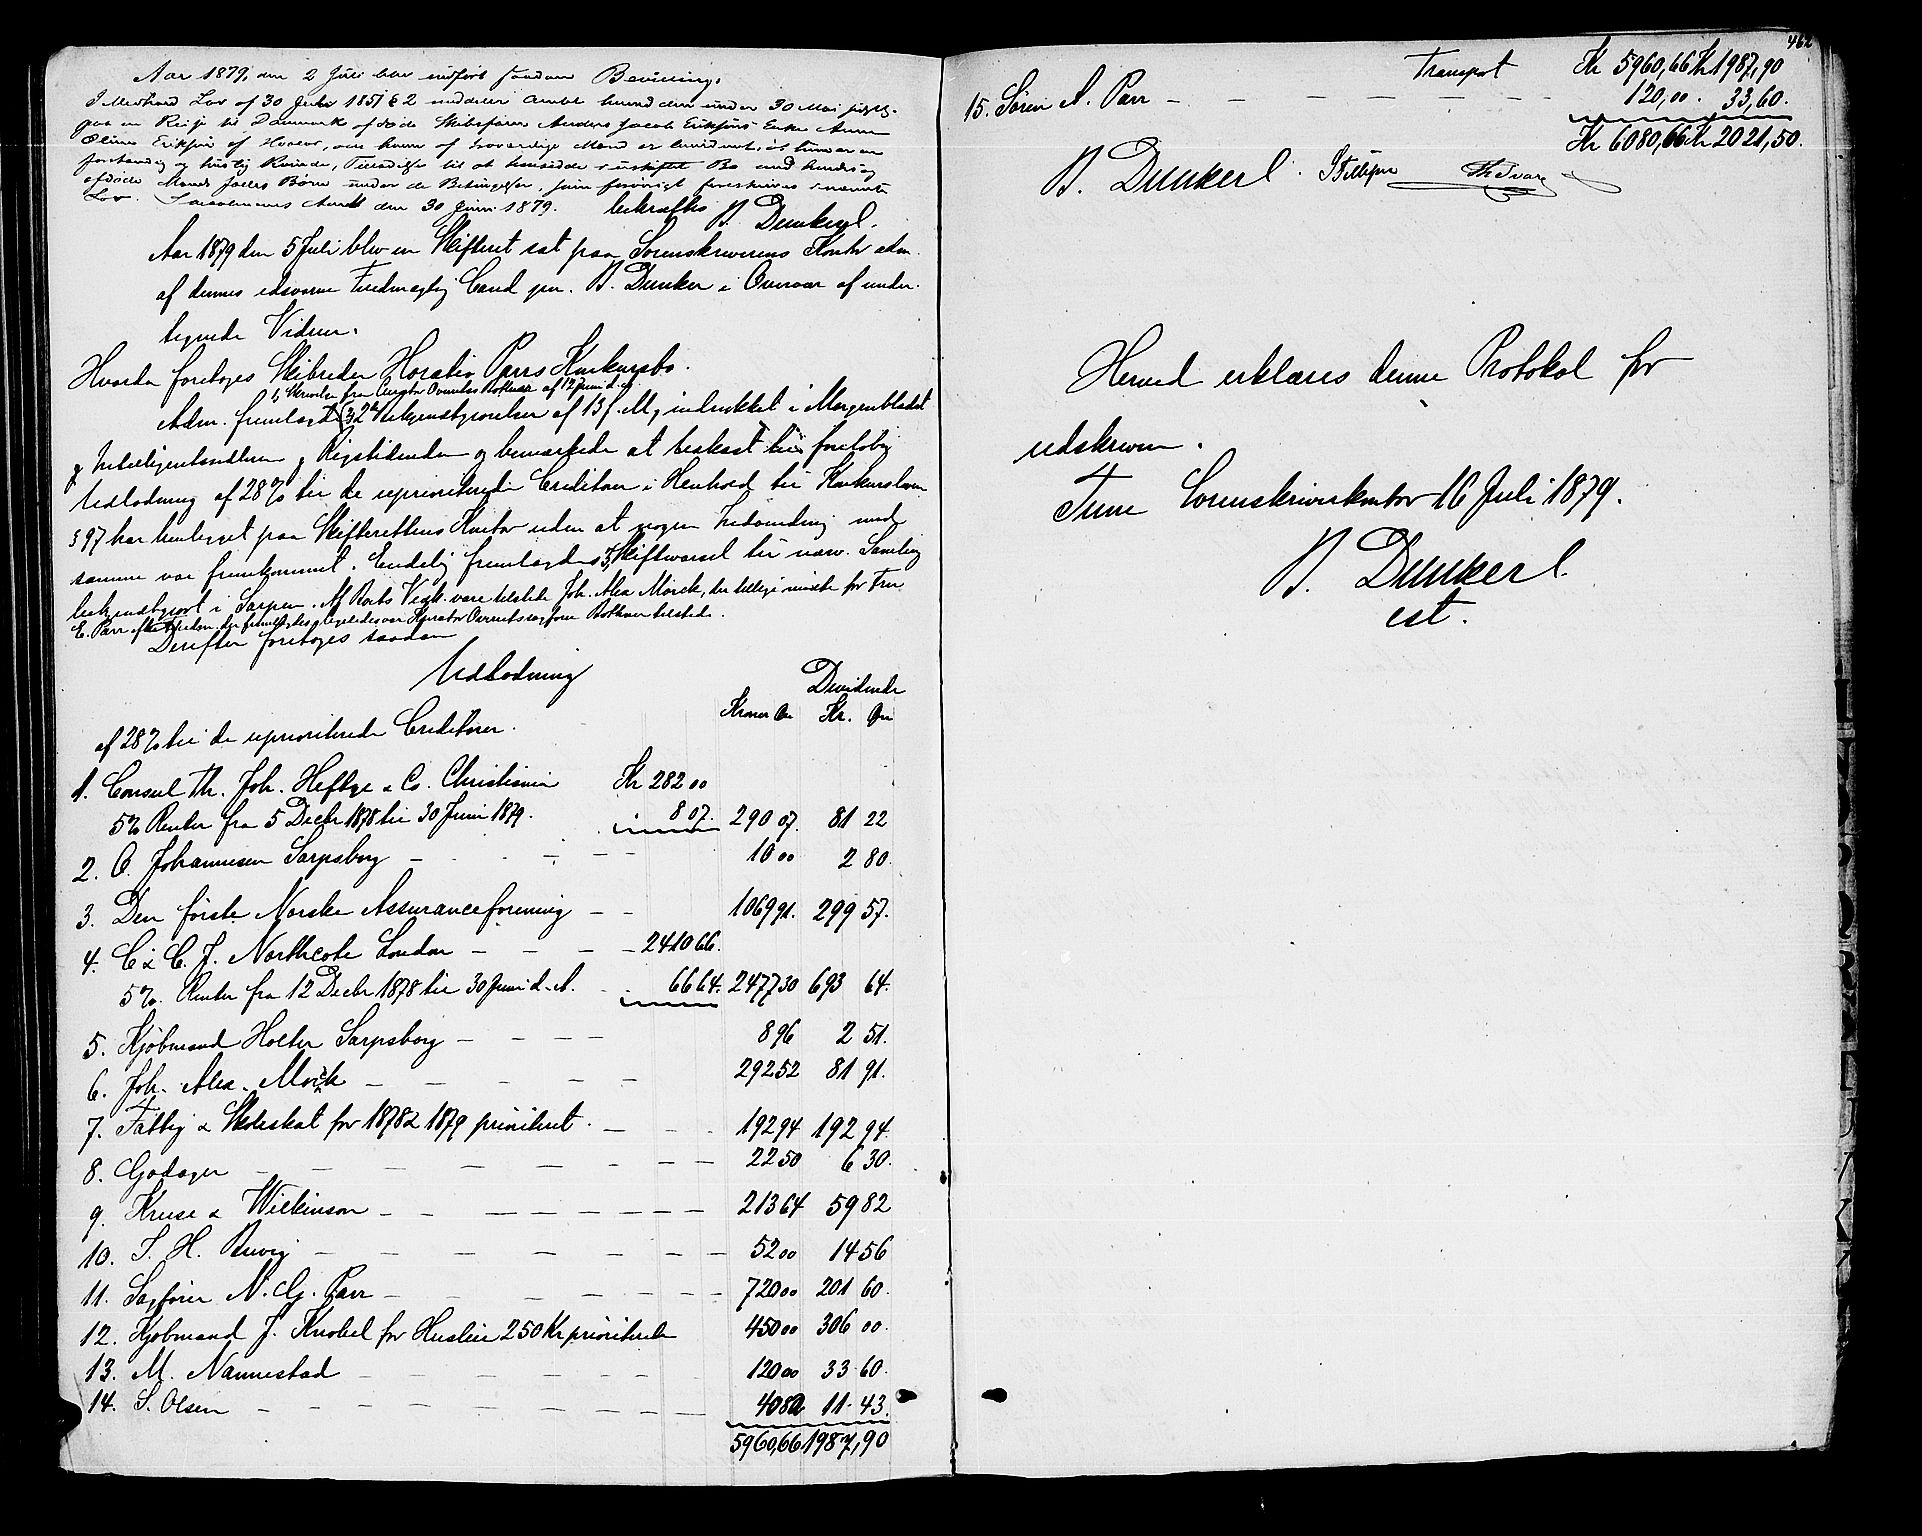 Aar 1879, den 2 Juli blev indført saadan Bevilling:
I Medhold Lov af 30 Juli 1851 § 2 meddeler Amtet herved den under 30 Mai
paa en Reise til Danmark afdøde Skibsfører Anders Jacob Eriksens Enke Anne
Oline Eriksen af Hvaler, om hvem af troværdige Mænd er bevidnet, at hun er en
forstandig og huslig Kvinde, Tilladelse til at hensidde i uskiftet Bo med hendes og
afdøde Mands fælles Børn under de Betingelser, som forøvrigt foreskrives i nævnte
Lov. Smaalenenes Amt den 30 Juni 1879. bekræftes B. Dunker cst.
Aar 1879 den 5 Juli blev en Skifteret sat paa Sorenskriverens Kontor adm.
af dennes edsvorne Fuldmægtig Cand jur. B. Dunker i Overvær af under-
tegnede Vidner.
Hvorda foretoges Skibreder Horatio Parrs Konkursbo.
1, Skrivelse fra Curator Overrets Rothner af 12 Juni d. A.
Adm. fremlagde (3) 2de Bekjendtgjørelser af 13 f. M, indrykket i Morgenbladet
og Intelligentssedlerne og Rigstidenden og bemærkede at Udkast til foreløbig
Udlodning af 28% til de uprioriterede Creditorer i Henhold til Konkursloven
§ 97 har henligget paa Skifterettens Kontor uden at nogen Indvending mod
samme var fremkommet. Endelig fremlagdes 5, Skiftevarsel til nærv. Samling
bekjendtgjort i Sarpen. Af Boets Vedk. vare tilstede Joh. Alex Morck, der tillige mødte for Fru
E. Parr efter der fremlagdes ligeledes var Kurator Overretssagfører Rothner tilstede.
Derefter foretoges saadan
Udlodning Dividende
af 28% til de uprioriterede Creditorer. Kroner Øre Kr. Øre
1. Consul Th. Joh. Heftye & Co. Christiania Kr 282 00
5% Renter fra 5 Decbr 1878 til 30 Juni 1879. 8 07. 290 07. 81 22
2. O. Johannesen Sarpsborg – – – – 10 00 2 80.
3. Den første Norske Assuranceforening – – 1069 91. 299 57.
4. C & C. J. Northcote London – – – – 2410 66.
5%. Renter fra 12 Decbr 1878 til 30 Juni d. A. 66 64. 2477 30 693 64.
5. Kjøbmand Holter Sarpsborg – – – – 8 96 2 51.
6. Joh. Alex. Morck – – – – – 292 52 81 91.
7. Fattig & Skoleskat for 1878 & 1879 prioriteret. – – 192 94 192 94.
8. Godager – – – – – – – 22 50 6 30.
9. Kruse & Wilkinson – – – – – – – 213 64 59 82
10. S. H. Buvig – – – – – – – 52 00 14 56
11. Sagfører N. G. Parr – – – – – – – 720 00 201 60.
12. Kjøbmand J. Knobel for Husleie 250 Kr prioriterede 450 00 306 00.
13. M. Nannestad – – – – – – 120 00 33 60.
14. S. Olsen – – – – – – – 40 82 11 43.
5960,66 1987,90
462
Transport Kr 5960,66 Kr 1987,90
15. Søren A. Parr – – – – – – – 120,00. 33,60.
Kr 6080,66 Kr 2021,50.
B. Dunker cst.
Herved erklæres denne Protokol for
udskreven.
Tune Sorenskriverkontor 16 Juli 1879.
B. Dunker
cst.